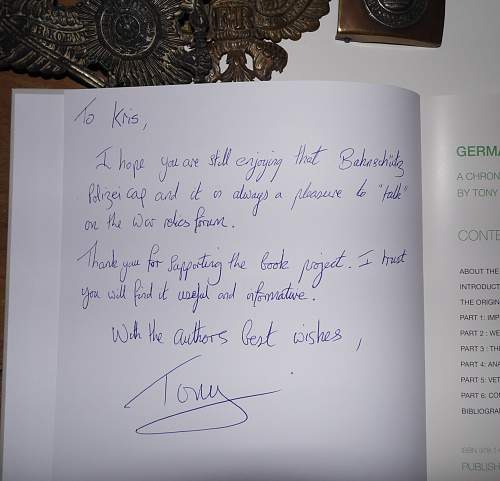 To Kris,
I hope you are still enjoying that Bahnschütz
Polizei cap and it is always a pleasure to "talk"
on the war relics forum.
Thank you for supporting the book project. I trust
you will find it useful and informative.
With the authors best wishes,
Tony
GERMA
A CHRON
BY TONY
CONTE
ABOUT THE
INTRODUCT
THE ORIGIN
PART 1: IMP
PART 2 : WE
PART 3 : THE
PART 4: ANA
PART 5: VET
PART 6: CON
BIBLIOGRA
ISBN 978-1-
PUBLISH